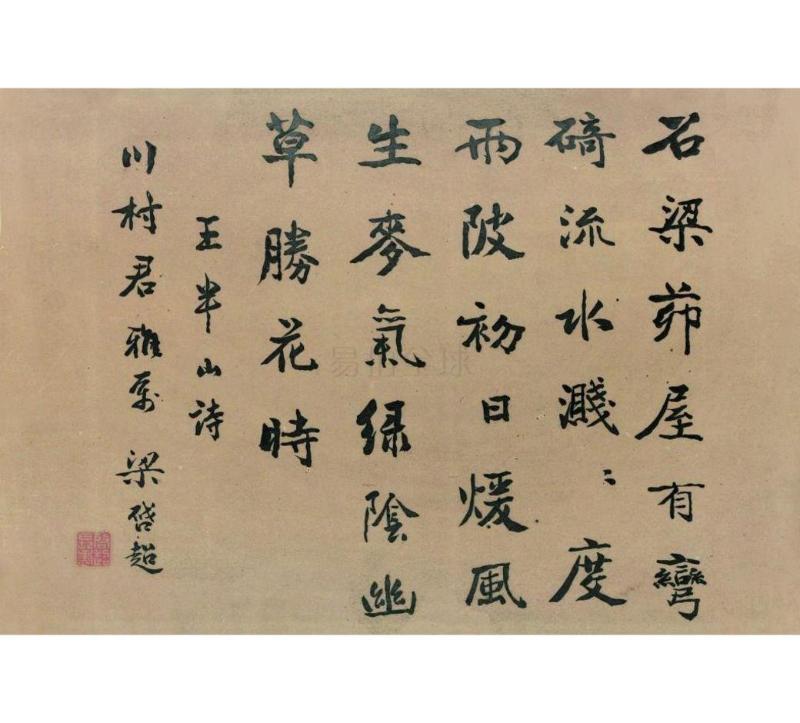 石梁茆屋有彎
碕流水濺〻度
兩陂初日煖風
生麥氣緑陰幽
草勝花時
王半山詩
川村君雅屬 梁啓超